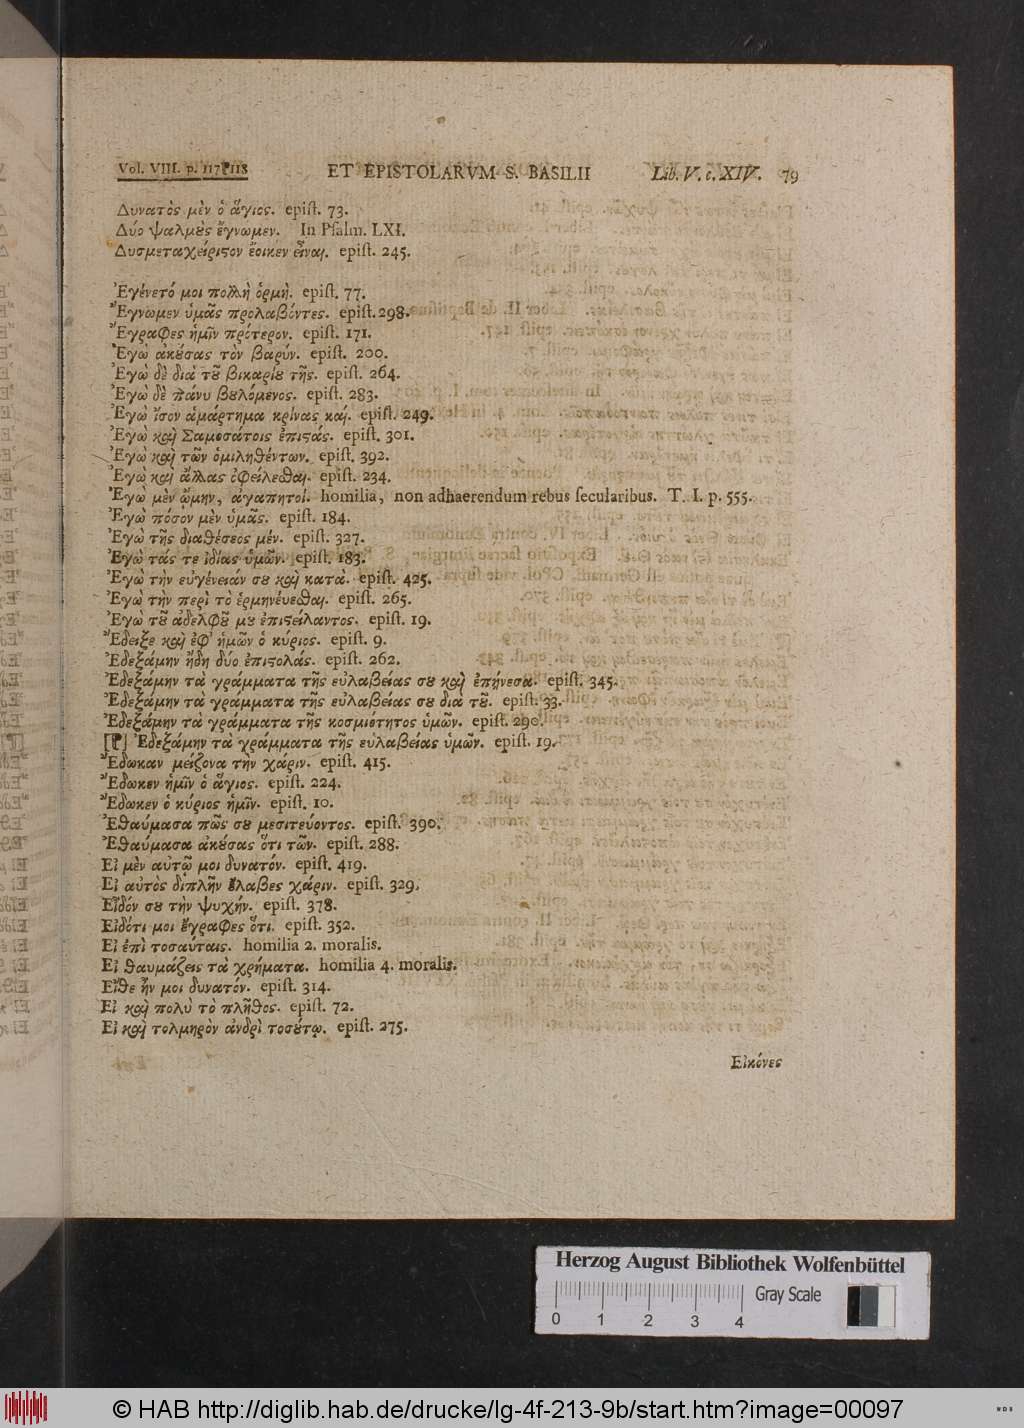 Vol. VIII. p. 117⁋118 ET EPISTOLARVM S. BASILII Lib. V. c. XIV. 79
Δυνατὸς μὲν ὁ ἅγιος. epiſt. 73.
Δύο ψαλμȣ̀ς ἔγνωμεν. In Pſalm. LXI.
Δυσμεταχείριϛον ἔοικεν εἶναι. epiſt. 245.
Ἐγένετό μοι πολλὴ ὁρμὴ. epiſt. 77.
Ἔγνωμεν ὑμᾶς προλαβόντες. epiſt. 298.
Ἔγραφες ἡμῖν πρότερον. epiſt. 171.
Ἐγὼ ἀκȣ́σας τὸν βαρύν. epiſt. 200.
Ἐγὼ δὲ διὰ τȣ͂ βικαρίȣ τῆς. epiſt. 264.
Ἐγὼ δὲ πάνυ βȣλόμενος. epiſt. 283.
Ἐγὼ ἴσον ἁμάρτημα κρίνας καί. epiſt. 249.
Ἐγὼ καὶ Σαμοσάτοις ἐπιϛάς. epiſt. 301.
Ἐγὼ καὶ τῶν ὁμιληθέντων. epiſt. 392.
Ἐγὼ καὶ ἄλλας ὀφείλεσθαι. epiſt. 234.
Ἐγὼ μὲν ᾤμην, ἀγαπητοί. homilia, non adhaerendum rebus ſecularibus. T. I. p. 555.
Ἐγὼ πόσον μὲν ὑμᾶς. epiſt. 184.
Ἐγὼ τῆς διαθέσεος μέν. epiſt. 327.
Ἐγὼ τάς τε ἰδίας ὑμῶν. epiſt. 183.
Ἐγὼ τὴν εὐγένειάν σȣ καὶ κατὰ. epiſt. 425.
Ἐγὼ τὴν περὶ τὸ ἑρμηνέυεσθαι. epiſt. 265.
Ἐγὼ τȣ͂ ἀδελφȣ͂ μȣ ἐπιϛείλαντος. epiſt. 19.
Ἔδειξε καὶ ἐφ’ ἡμῶν ὁ κύριος. epiſt. 9.
Ἐδεξάμην ἤδη δύο ἐπιϛολάς. epiſt. 262.
Ἐδεξάμην τὰ γράμματα τῆς εὐλαβείας σȣ καὶ ἐπῄνεσα. epiſt. 345.
Ἐδεξάμην τὰ γράμματα τῆς εὐλαβείας σȣ διὰ τȣ͂. epiſt. 33.
Ἐδεξάμην τὰ γράμματα τῆς κοσμιότητος ὑμῶν. epiſt. 290.
[⁋] Ἐδεξάμην τὰ γράμματα τῆς εὐλαβείας ὑμῶν. epiſt. 19.
Ἔδωκαν μείζονα τὴν χάριν. epiſt. 415.
Ἔδωκεν ἡμῖν ὁ ἅγιος. epiſt. 224.
Ἔδωκεν ὁ κύριος ἡμῖν. epiſt. 10.
Ἐθαύμασα πῶς σȣ μεσιτεύοντος. epiſt. 390.
Ἐθαύμασα ἀκȣ́σας ὅτι τῶν. epiſt. 288.
Εἰ μὲν αὐτῷ μοι δυνατόν. epiſt. 419.
Εἰ αὐτὸς διπλῆν ἔλαβες χάριν. epiſt. 329.
Εἶδόν σȣ τὴν ψυχήν. epiſt. 378.
Εἰδότι μοι ἔγραφες ὅτι. epiſt. 352.
Εἰ ἐπὶ τοσαύταις. homilia 2. moralis.
Εἰ θαυμάζεις τὰ χρήματα. homilia 4. moralis.
Εἴθε ἦν μοι δυνατόν. epiſt. 314.
Εἰ καὶ πολὺ τὸ πλῆθος. epiſt. 72.
Εἰ καὶ τολμηρὸν ἀνδρὶ τοσȣ́τῳ. epiſt. 275.
Εἰκόνες
Herzog August Bibliothek Wolfenbüttel
Gray Scale
0 1 2 3 4
© HAB http://diglib.hab.de/drucke/lg-4f-213-9b/start.htm?image=00097